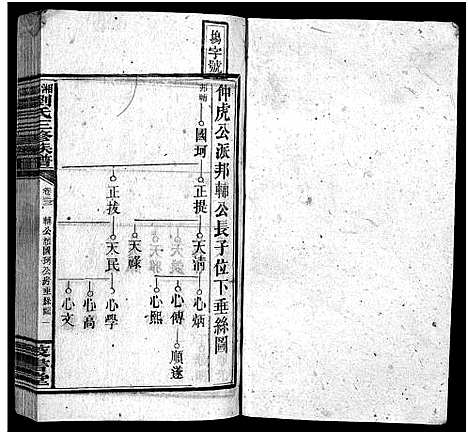 塢字號
仲虎公派邦輔公長子位下垂絲圖
邦輔
國珂
正提
正拔
天清
天祿
天民
心炳
心傳
心熙
心學
心高
心文
順遂
湘劉氏三修族譜
輔公房國珂公房垂絲圖